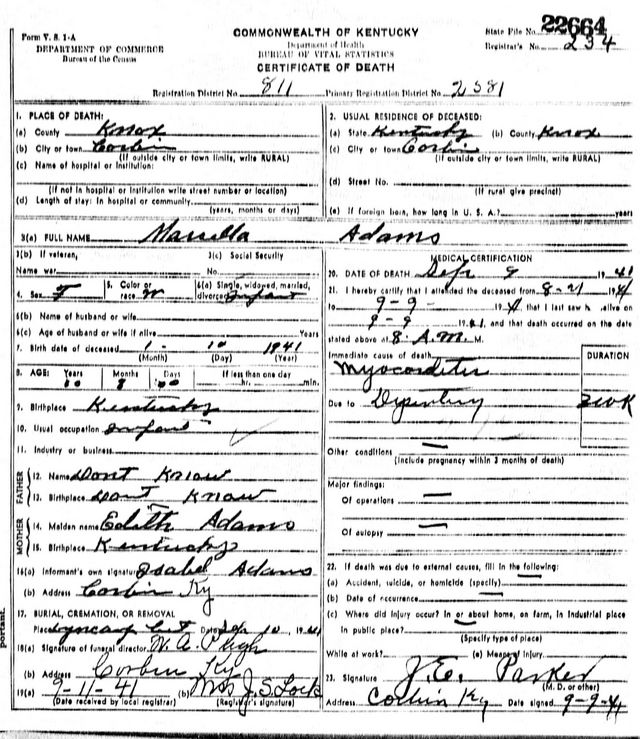 Form V. S. 1-A
DEPARTMENT OF COMMERCE
Bureau of the Census
COMMONWEALTH OF KENTUCKY
Department of Health
BUREAU OF VITAL STATISTICS
CERTIFICATE OF DEATH
State File No. 22664
Registrar's No. 234
Registration District No. 811 Primary Registration District No. 2381
1. PLACE OF DEATH:
(a) County Knox
(b) City or town Corbin
(If outside city or town limits, write RURAL)
(c) Name of hospital or institution:
(If not in hospital or institution write street number or location)
(d) Length of stay: In hospital or community
(years, months or days)
2. USUAL RESIDENCE OF DECEASED:
(a) State Kentucky (b) County Knox
(c) City or town Corbin
(If outside city or town limits, write RURAL)
(d) Street No.
(If rural give precinct)
(e) If foreign born, how long in U. S. A.? years
3(a) FULL NAME Marcella Adams
3(b) If veteran, 3(c) Social Security
Name war No.
4. Sex F 5. Color or race W 6(a) Single, widowed, married, divorced Infant
6(b) Name of husband or wife
6(c) Age of husband or wife if alive Years
7. Birth date of deceased 1 - 10 1941
(Month) (Day) (Year)
8. AGE: Years Months Days If less than one day
00 8 00 hr. min.
9. Birthplace Kentucky
10. Usual occupation Infant
11. Industry or business
FATHER
12. Name Dont Know
13. Birthplace Dont Know
MOTHER
14. Maiden name Edith Adams
15. Birthplace Kentucky
16(a) Informant's own signature Isabel Adams
(b) Address Corbin Ky
17. BURIAL, CREMATION, OR REMOVAL
Place Date 10 1941
18(a) Signature of funeral director W. A.
(b) Address Corbin Ky
19(a) 9-11-41 (b) Mrs J. S. Lock
(Date received by local registrar) (Registrar's signature)
MEDICAL CERTIFICATION
20. DATE OF DEATH Sept 9 1941
21. I hereby certify that I attended the deceased from 8-21 1941
to 9-9- 1941 that I last saw h alive on
9-9 1941, and that death occurred on the date
stated above at 8 A.M. M.
Immediate cause of death DURATION
Myocarditis
Due to Dysentery 3 WK
Other conditions
(Include pregnancy within 3 months of death)
Major findings:
Of operations
Of autopsy
22. If death was due to external causes, fill in the following:
(a) Accident, suicide, or homicide (specify)
(b) Date of occurrence
(c) Where did injury occur? In or about home, on farm, in industrial place
in public place?
(Specify type of place)
While at work? (e) Means of injury
23. Signature J. E. Parker
(M. D. or other)
Address Corbin Ky Date signed 9-9-41
portant.